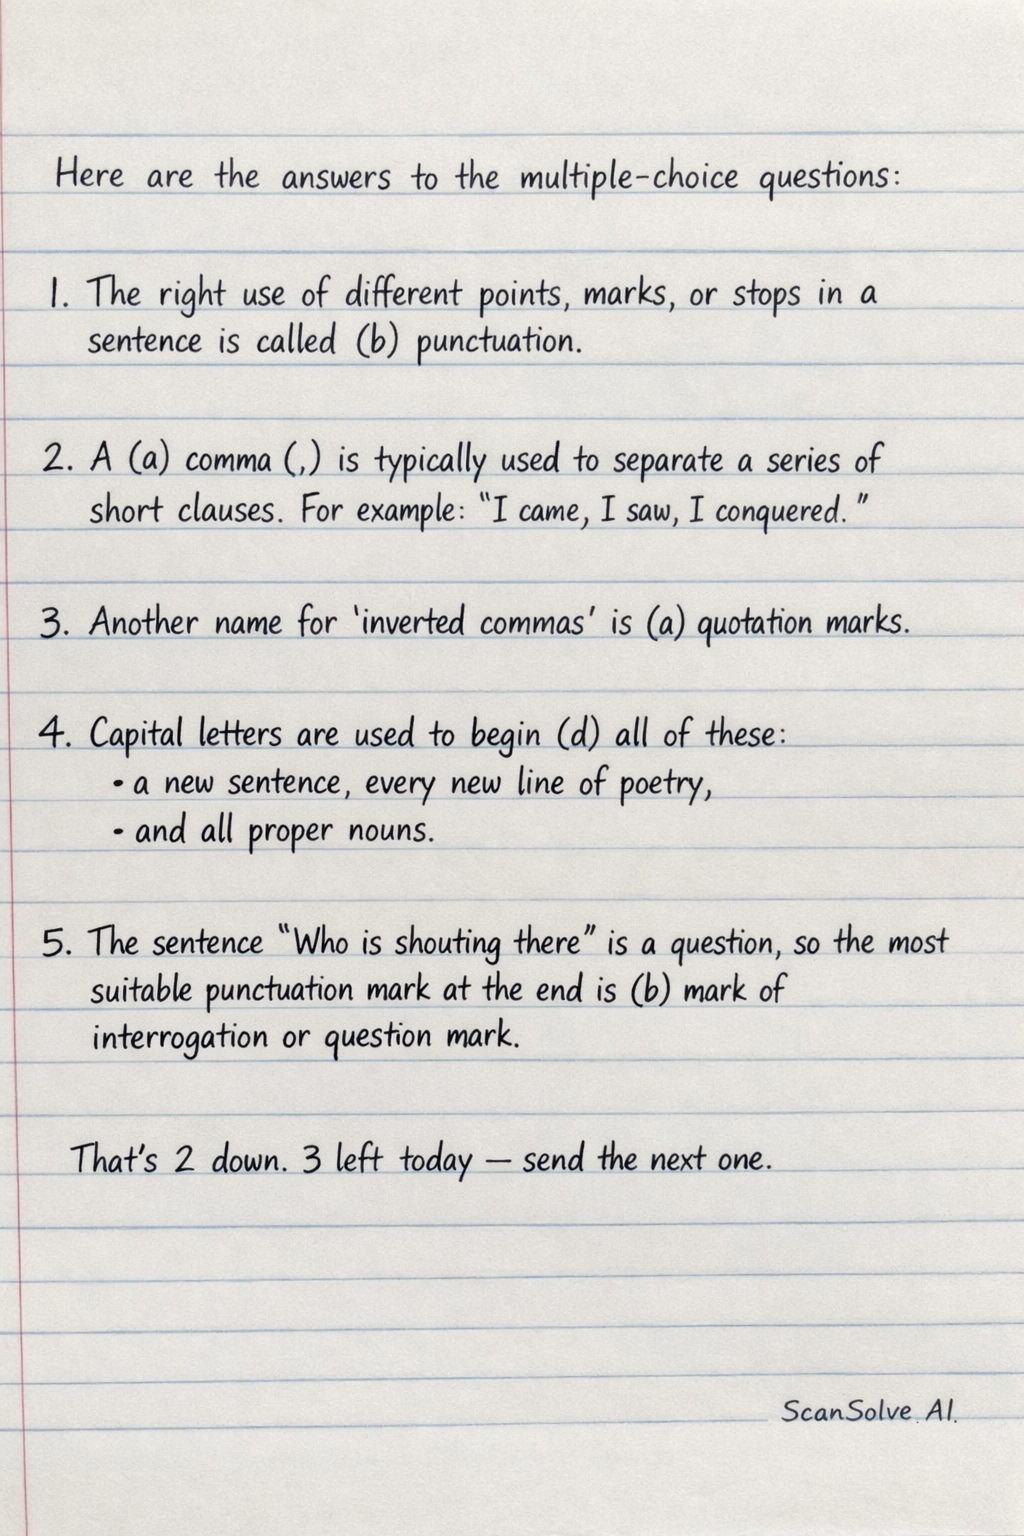 Here are the answers to the multiple-choice questions:
1. The right use of different points, marks, or stops in a
sentence is called (b) punctuation.
2. A (a) comma (,) is typically used to separate a series of
short clauses. For example: "I came, I saw, I conquered."
3. Another name for 'inverted commas' is (a) quotation marks.
4. Capital letters are used to begin (d) all of these:
• a new sentence, every new line of poetry,
• and all proper nouns.
5. The sentence "Who is shouting there" is a question, so the most
suitable punctuation mark at the end is (b) mark of
interrogation or question mark.
That's 2 down. 3 left today — send the next one.
ScanSolve AI.